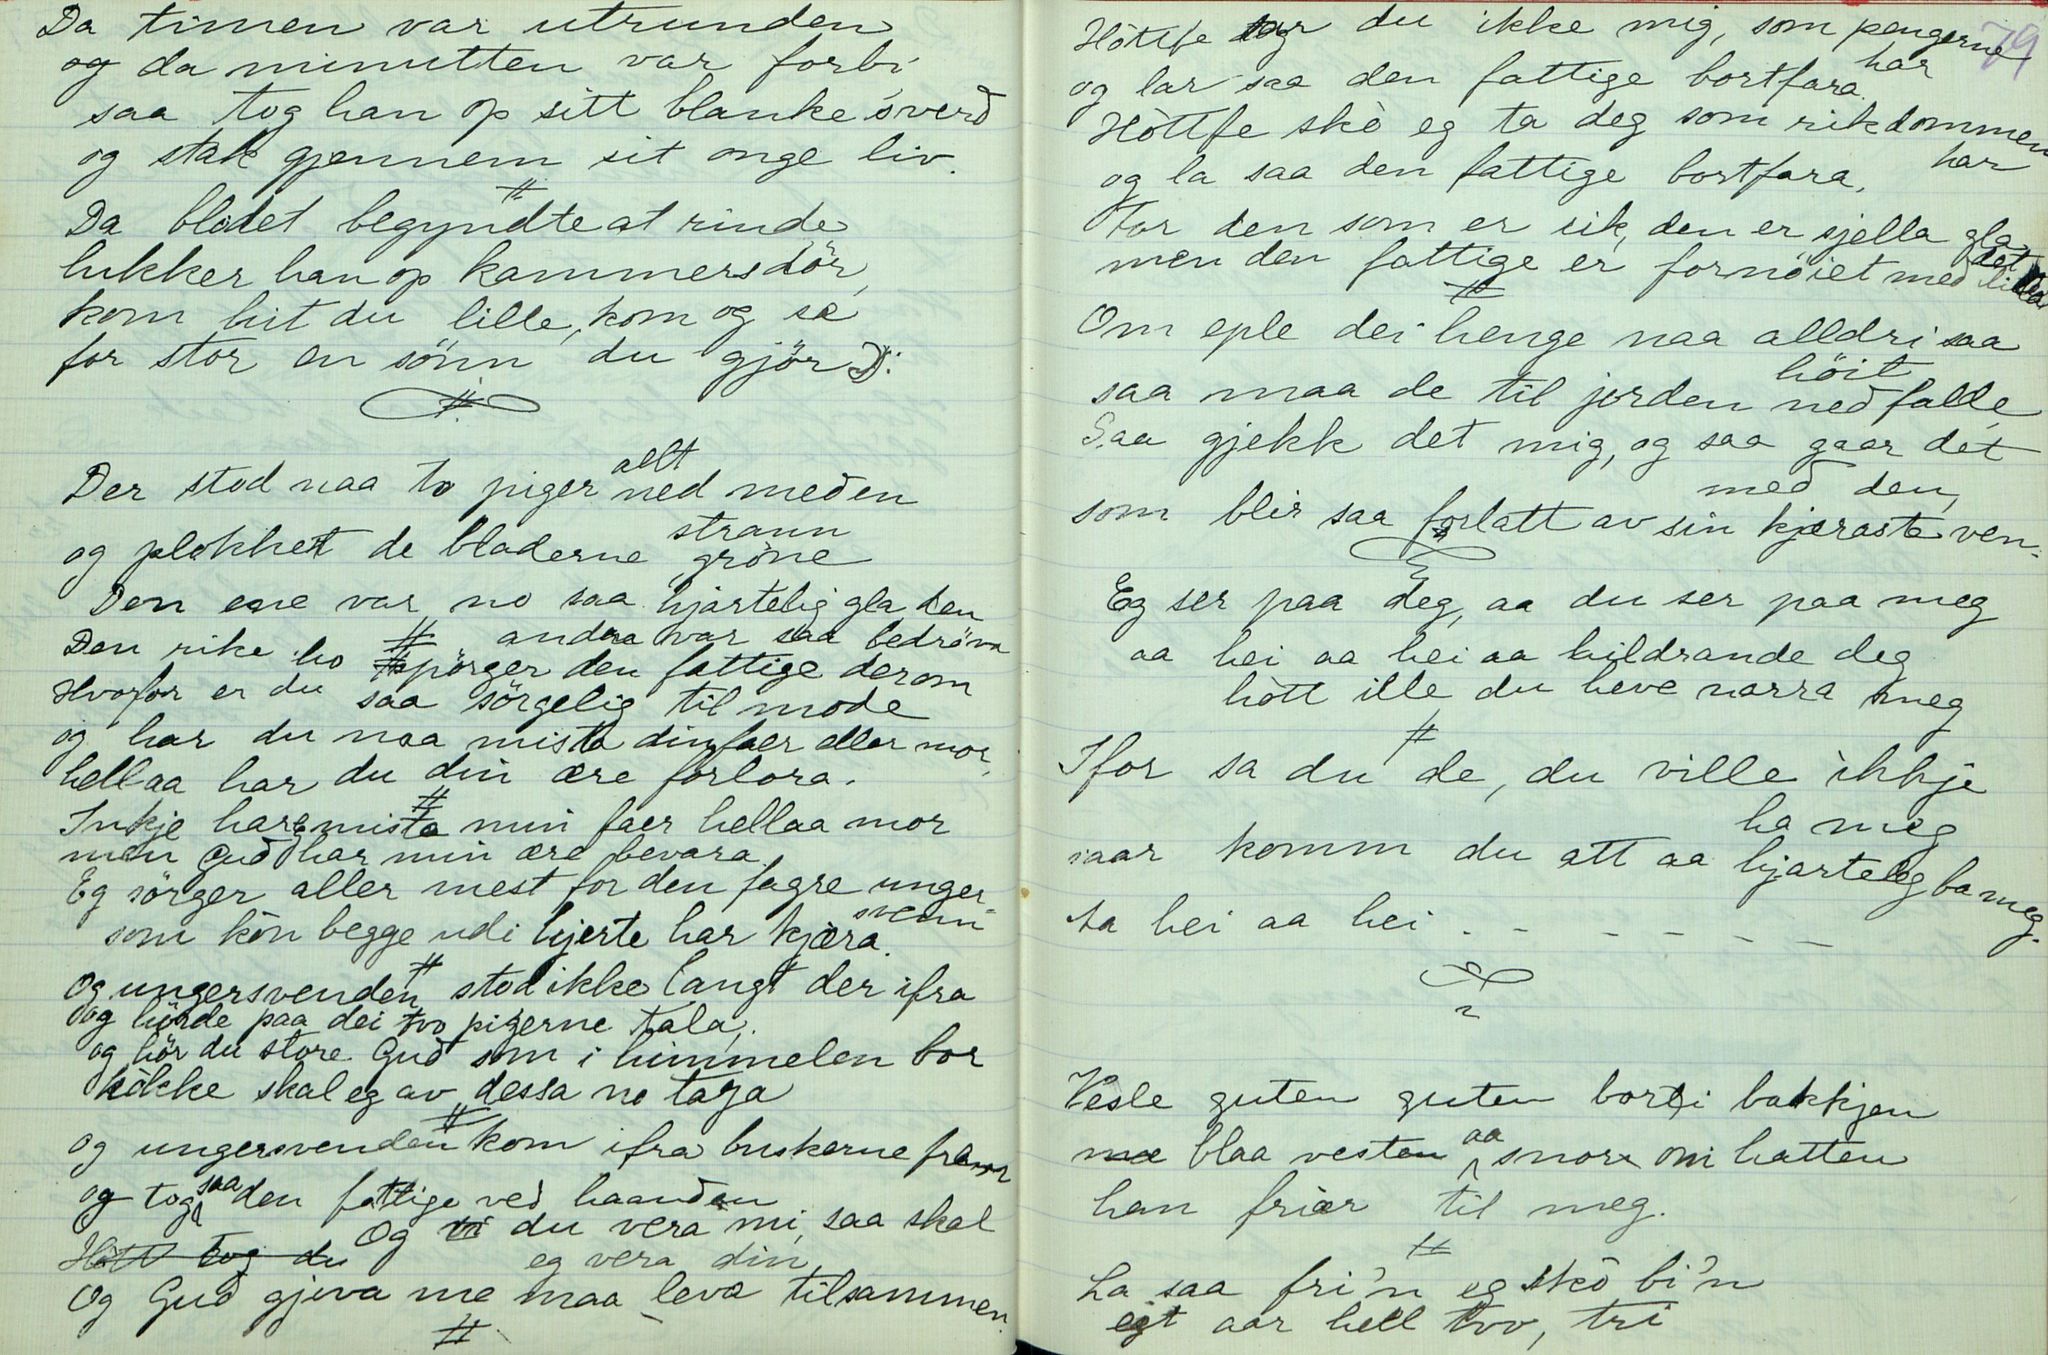 Da timen var utrunden
og da minutten var forbi
saa tog han op sitt blanke sverd
og stak gjennem sit onge liv.
#
Da blodet begyndte at rinde
lukker han op kammersdör,
kom hit du lille, kom og se
for stor en sönn du gjör :
#
Der stod naa to piger allt ned med en
strann
og plokket de bladerne gröne
Den ene var no saa hjartelig gla den
andra var saa bedröva
#
Den rike ho spörger den fattige derom
Hvorfor er du saa sörgelig til mode
og har du naa mista din faer eller mor,
hellaa har du din ære forlora.
#
Inkje har eg mista min faer hellaa mor
men Gud har min ære bevara.
Eg sörger aller mest for den fagre unger-
svenn
som kòn begge udi hjerte har kjæra.
#
Og ungersvenden stod ikke langt der ifra
og hörde paa dei tvo pigerne tala,
og hör du store Gud som i himmelen bor
hòkke skal eg av dessa no taga
#
og ungersvenden kom ifra buskerne fram
og tog saa den fattige ved haanden
Hòtt tog du Og vi du vera mi, saa skal
eg vera din
Og Gud gjeva me maa leva tilsammen.
#
79
Hòttfe tar du ikke mig, som pengerne
har
og lar saa den fattige bortfara.
Hòttfe skò eg ta deg som rikdommen
har
og la saa den fattige bortfara,
For den som er rik, den er sjella gla
men den fattige er fornöiet med det lilla
#
Om eple dei henge naa alldri saa
höit
saa maa de til jorden nedfalde
Saa gjekk det mig, og saa gaar det
med den,
som blir saa forlatt av sin kjæraste ven.
Eg ser paa deg, aa du ser paa meg
aa hei aa hei aa hildrande deg
hòtt ille du heve narra meg
#
Ifor sa du de, du ville ikkje
ha meg
iaar komm du att aa hjarteleg ba meg.
Aa hei aa hei - - - - - -
Vesle guten guten borti bakkjen
me blaa vesten aa snore om hatten
han friar til meg.
#
La saa fri'n eg skò bi'n
eit aar hell tvo, tri